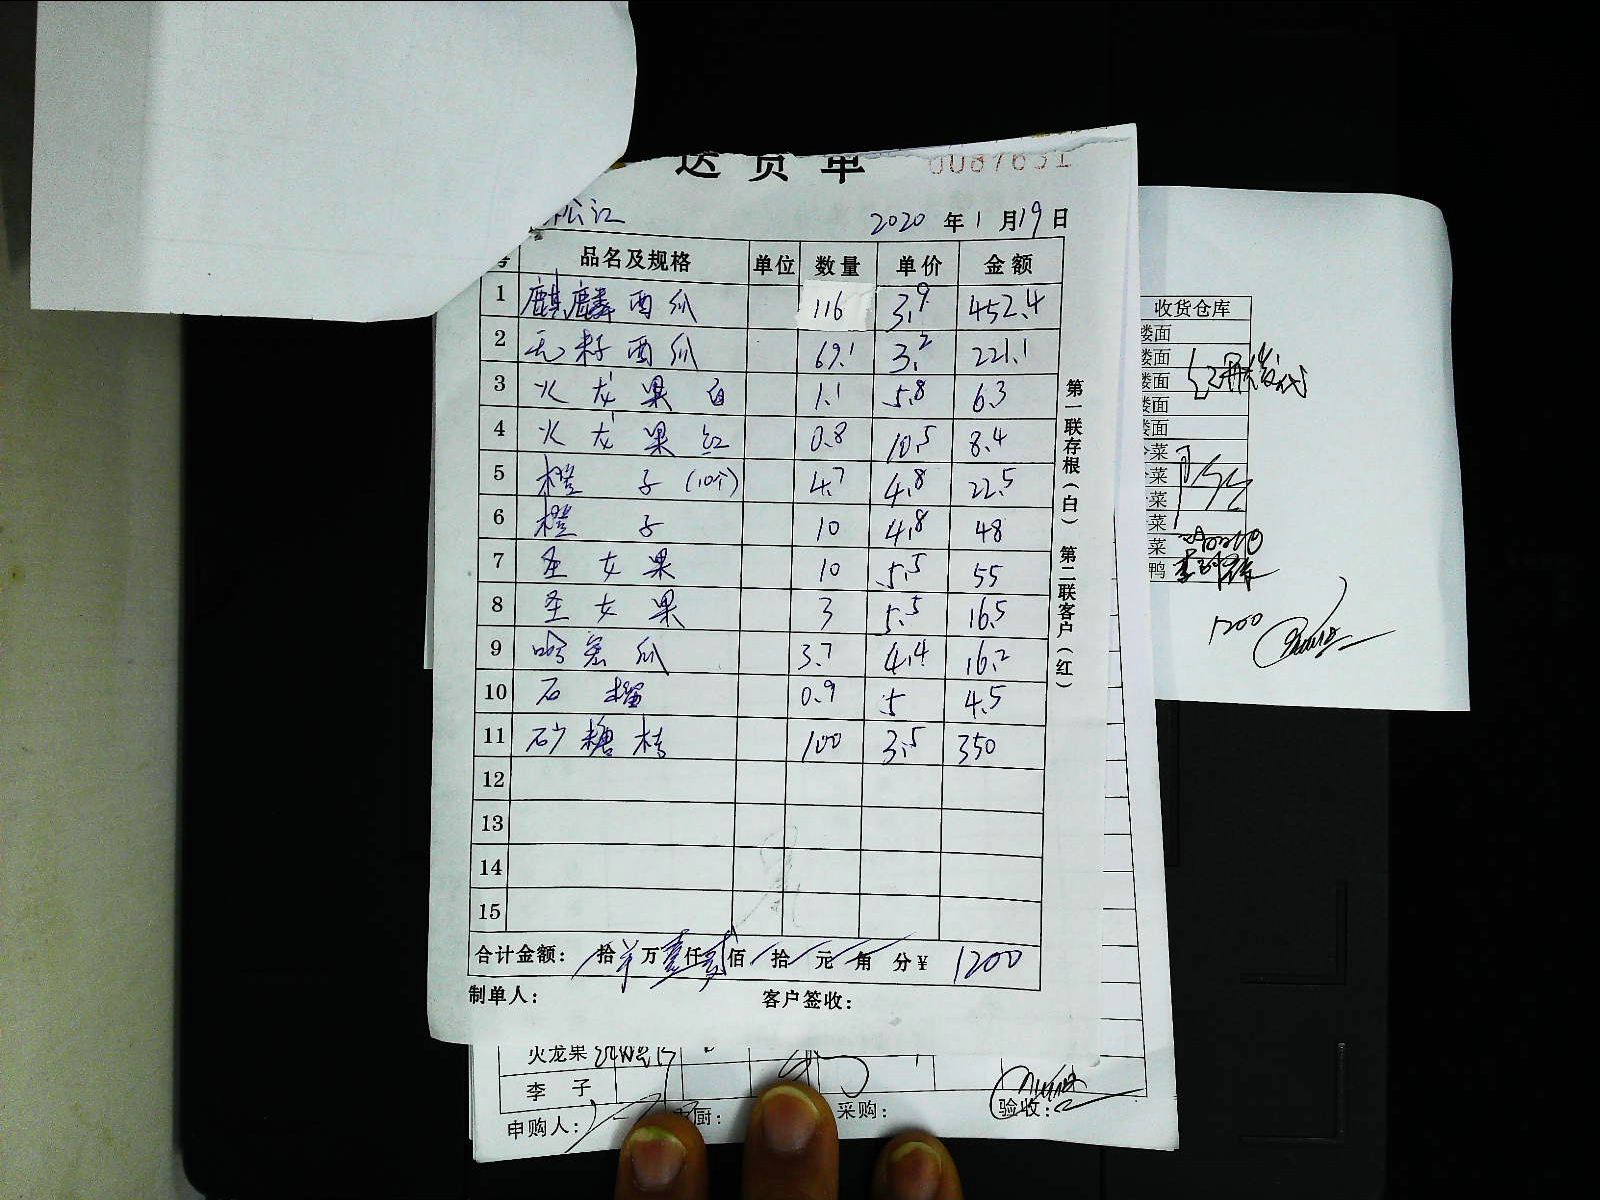 送货单 0087631
松江 2020 年 1 月 19 日
号 品名及规格 单位 数量 单价 金额
1 麒麟西瓜 116 3.9 452.4
2 无籽西瓜 69.1 3.2 221.1
3 火龙果白 1.1 5.8 6.3
4 火龙果红 0.8 10.5 8.4
5 橙子(10个) 4.7 4.8 22.5
6 橙子 10 4.8 48
7 圣女果 10 5.5 55
8 圣女果 3 5.5 16.5
9 哈密瓜 3.7 4.4 16.2
10 石榴 0.9 5 4.5
11 砂糖桔 100 3.5 350
12
13
14
15
合计金额: 拾 万壹仟贰佰 拾 元 角 分¥ 1200
制单人: 客户签收:
第一联存根(白) 第二联客户(红)
收货仓库
楼面
楼面
楼面
楼面
楼面
菜
菜
菜
菜
菜
鸭
1200
火龙果
李子
申购人: 厨: 采购: 验收: